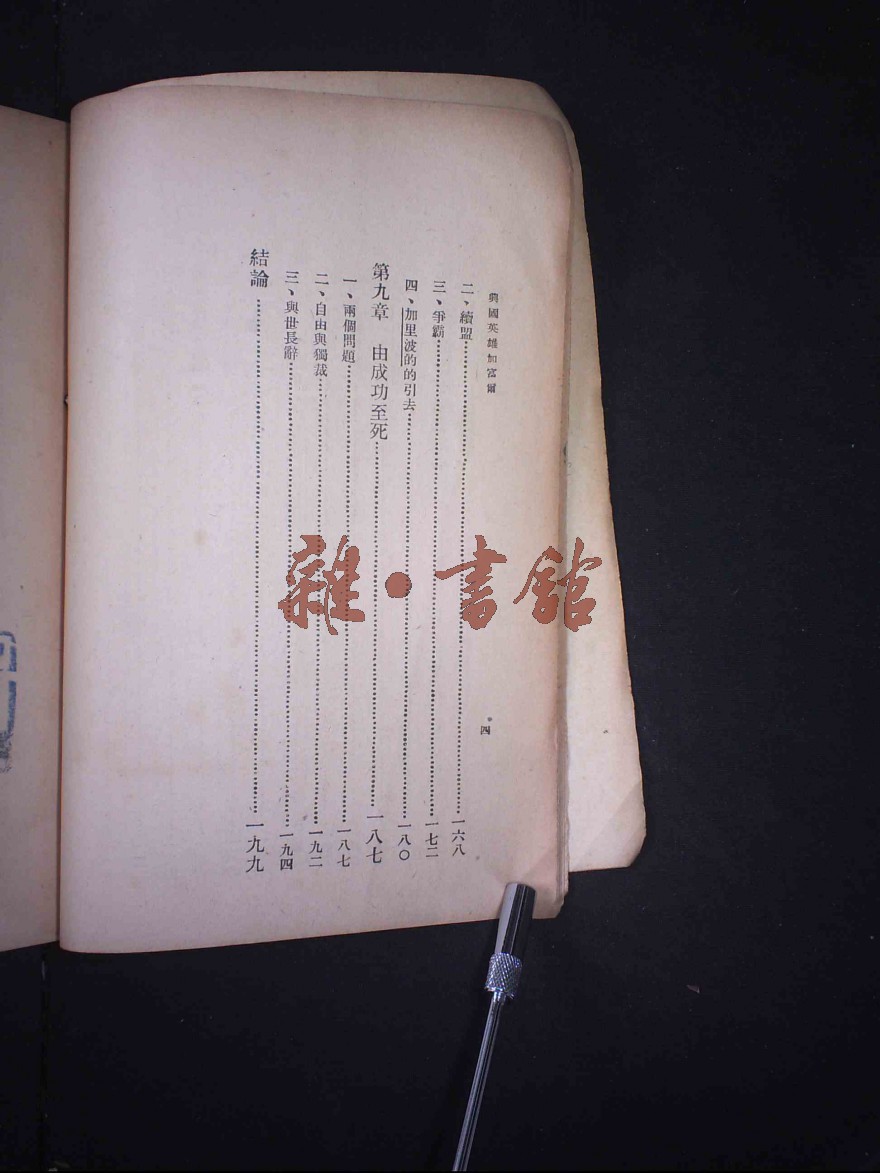 興國英雄加富爾
四
二、續盟……一六八
三、爭霸……一七二
四、加里波的的引去……一八〇
第九章　由成功至死……一八七
一、兩個問題……一八七
二、自由與獨裁……一九二
三、與世長辭……一九四
結論……一九九
雜•書館